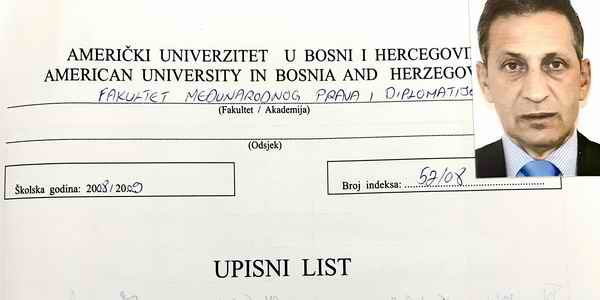 AMERIČKI UNIVERZITET U BOSNI I HERCEGOVI
AMERICAN UNIVERSITY IN BOSNIA AND HERZEGOV
FAKULTET MEĐUNARODNOG PRAVA I DIPLOMATIJE
(Fakultet / Akademija)
(Odsjek)
Školska godina: 2008/2009
Broj indeksa: 57/08
UPISNI LIST